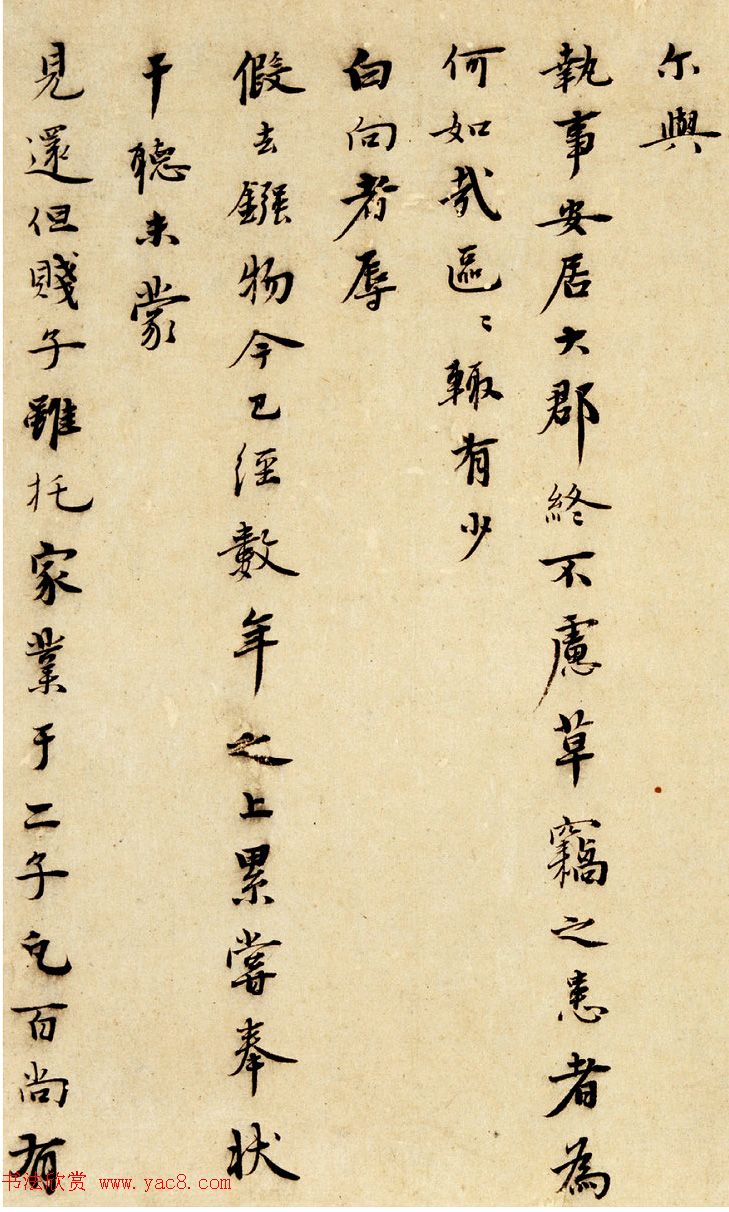 尔與
執事安居大郡終不慮草竊之患者為
何如哉區〻輙有少
白向者辱
假去鏹物今已經數年之上累嘗奉狀
干聽未蒙
見還但賤子雖托家業于二子乞百尚有
书法欣赏 www.yac8.com